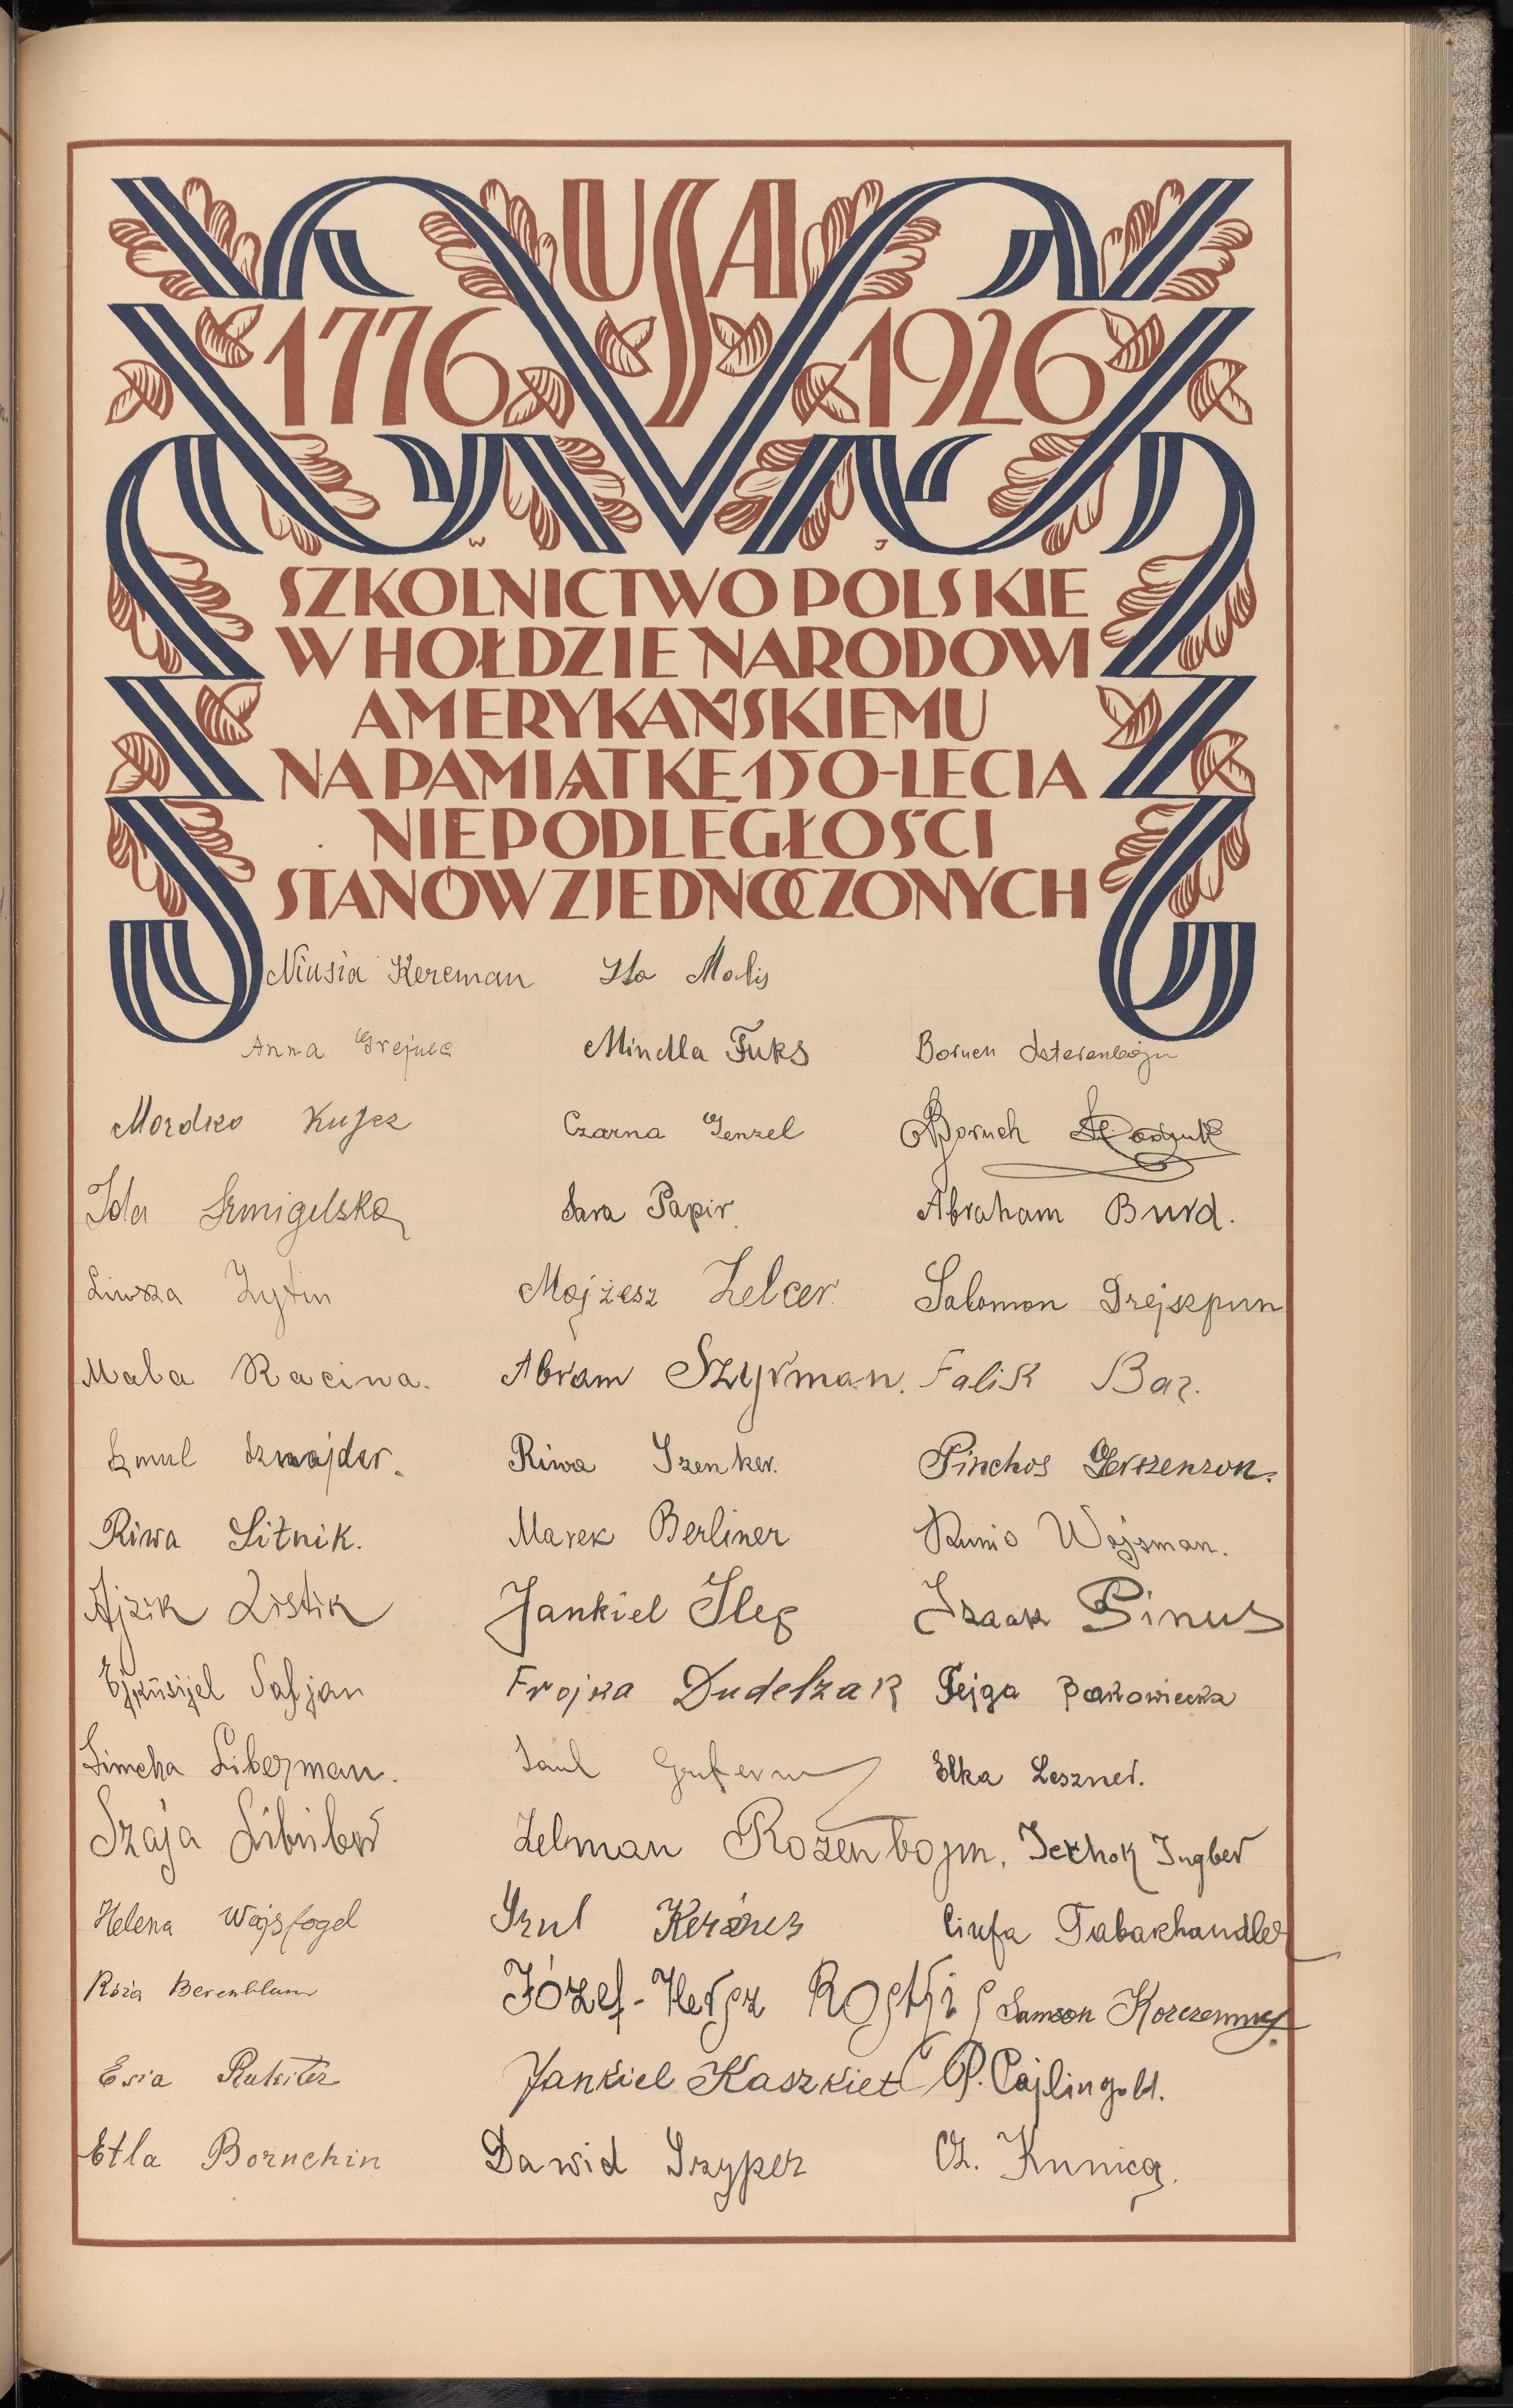 USA
1776 1926
W J
SZKOLNICTWO POLSKIE
W HOŁDZIE NARODOWI
AMERYKAŃSKIEMU
NA PAMIĄTKĘ 150-LECIA
NIEPODLEGŁOŚCI
STANÓW ZJEDNOCZONYCH
Niusia Kereman Ita Malis
Anna Mindla Fuks Boruch Szterenbojm
Mordko Kujes Czarna Genzel Boruch
Ida Szmigelska Sara Papir Abraham Burd.
Liwsza Zytin Mojżesz Zelcer. Salomon Drejszpun
Mala Racina. Abram Szyrman. Falik Baz.
Szmul Sznajder. Riwa Szenker. Pinchos Gerszenzon.
Riwa Sitnik. Marek Berliner Runio Wajsman.
Ajzik Listik Jankiel Fleg Izaak Pinus
Safjan Frojka Dudelzak Fejga Bakowiecka
Simcha Liberman. Saul Elka Leszner.
Szaja Zelman Rozenbojm, Icchok Ingber
Helena Wajsfogel Srul Kerzner Cirfa Tabakhandler
Róża Berenblum Józef-Hersz Samson Korczemny.
Esia Jankiel Kaszkiet P. Cajlingold.
Etla Boruchin Dawid Szyper Ch. Kunica.